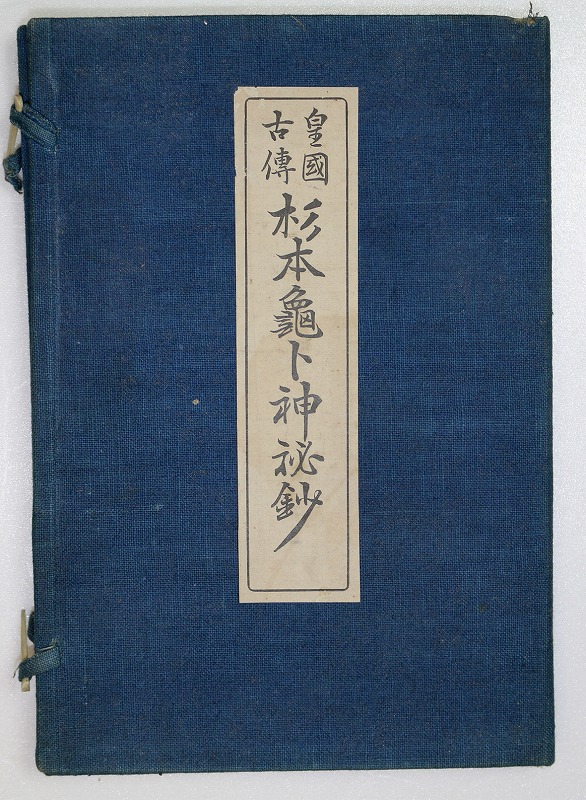 皇國
古傳
杉本龜卜神祕鈔